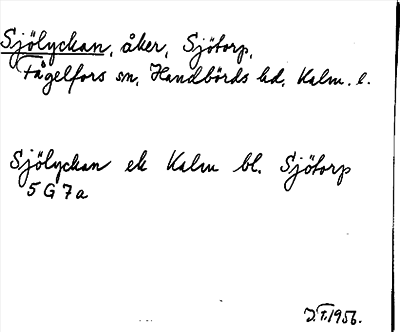 Sjölyckan, åker, Sjötorp,
Fågelfors sn, Handbörds hd, Kalm. l.
Sjölyckan ek Kalm bl. Sjötorp
5 G 7 a
J.T. 1956.